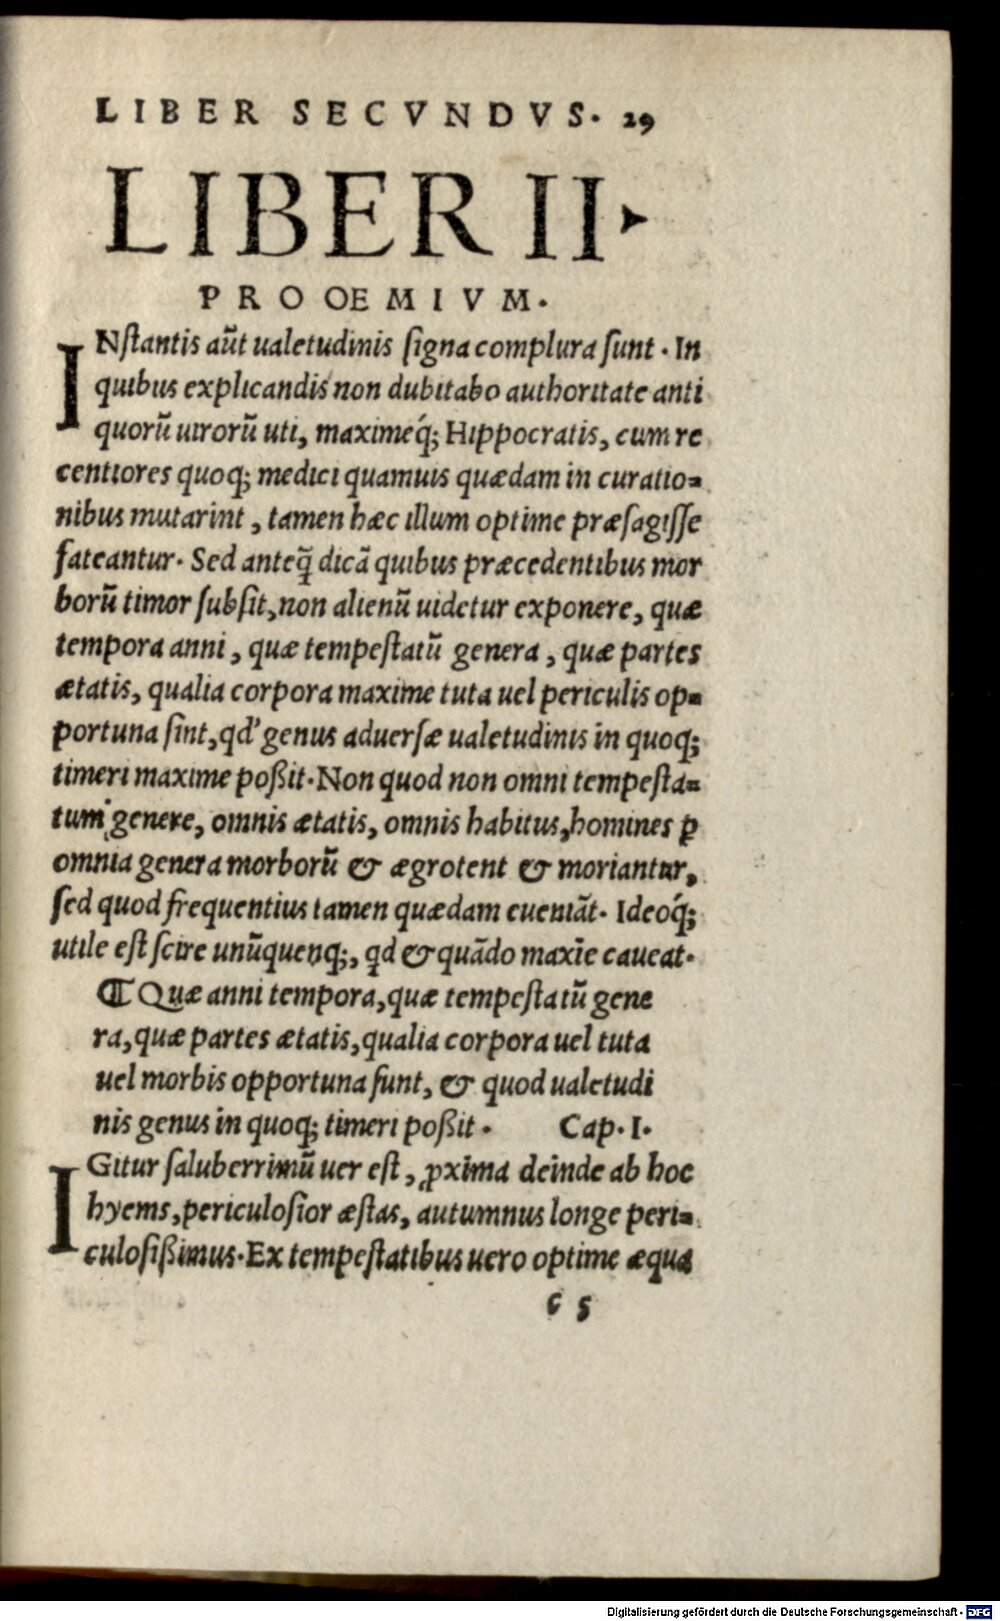 LIBER SECVNDVS. 29
LIBER II.
PROOEMIVM.
INſtantis aũt ualetudinis ſigna complura ſunt. In
quibus explicandis non dubitabo authoritate anti
quorũ uirorũ uti, maximeq́; Hippocratis, cum re
centiores quoq; medici quamuis quædam in curatio-
nibus mutarint, tamen hæc illum optime præſagiſſe
fateantur. Sed anteq̃ dicã quibus præcedentibus mor
borũ timor ſubſit, non alienũ uidetur exponere, quæ
tempora anni, quæ tempeſtatũ genera, quæ partes
ætatis, qualia corpora maxime tuta uel periculis op-
portuna ſint, qd' genus aduerſæ ualetudinis in quoq;
timeri maxime poßit. Non quod non omni tempeſta-
tum genere, omnis ætatis, omnis habitus, homines ꝑ
omnia genera morborũ & ægrotent & moriantur,
ſed quod frequentius tamen quædam eueniãt. Ideoq́;
utile eſt ſcire unũquenq;, qd & quãdo maxĩe caueat.
¶ Quæ anni tempora, quæ tempeſtatũ gene
ra, quæ partes ætatis, qualia corpora uel tuta
uel morbis opportuna ſunt, & quod ualetudi
nis genus in quoq; timeri poßit. Cap. I.
IGitur ſaluberrimũ uer eſt, ꝓxima deinde ab hoc
hyems, periculoſior æſtas, autumnus longe peri-
culoſißimus. Ex tempeſtatibus uero optime æqua
c 5
Digitalisierung gefördert durch die Deutsche Forschungsgemeinschaft - DFG